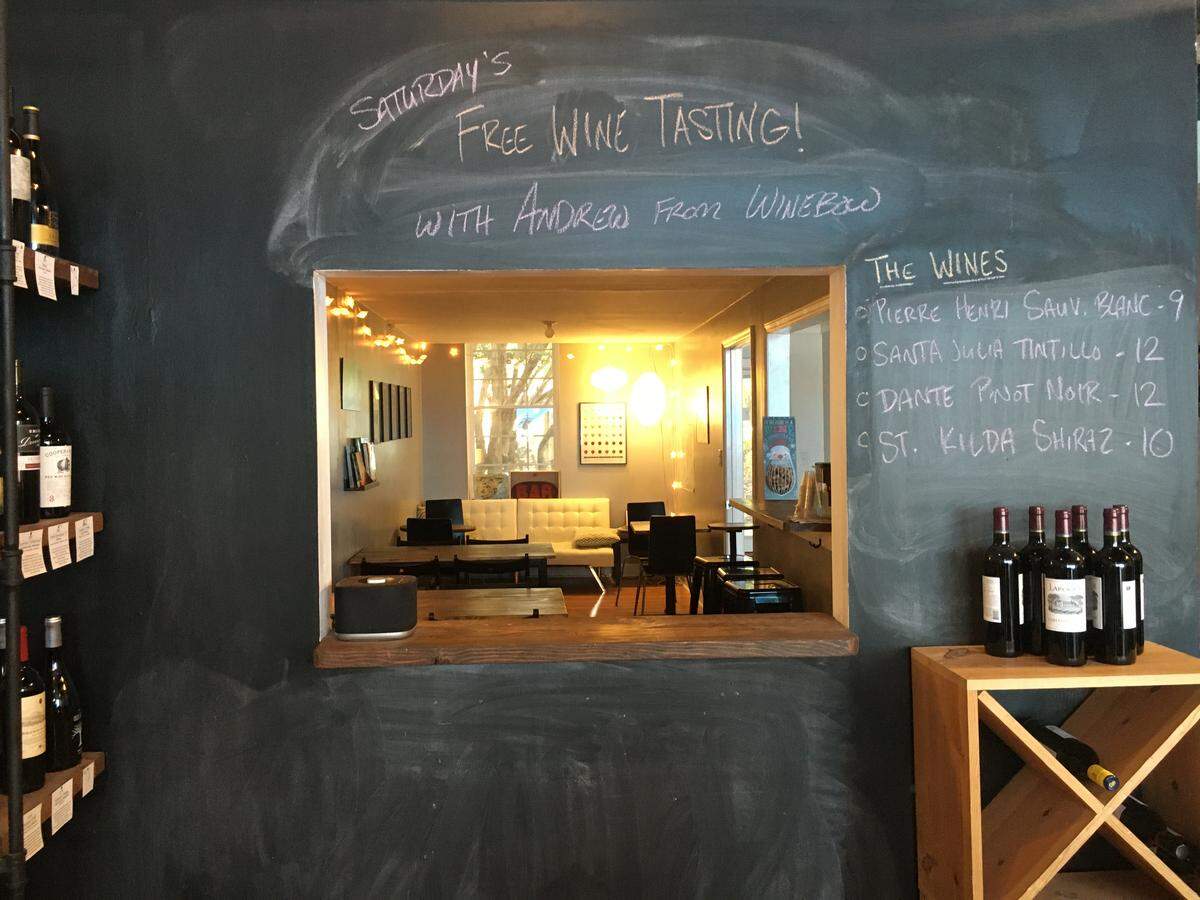 SATURDAY'S
FREE WINE TASTING!
WITH ANDREW FROM WINEBOW
THE WINES
PIERRE HENRI SAUV. BLANC - 9
SANTA JULIA TINTILLO - 12
DANTE PINOT NOIR - 12
ST. KILDA SHIRAZ - 10
BAR